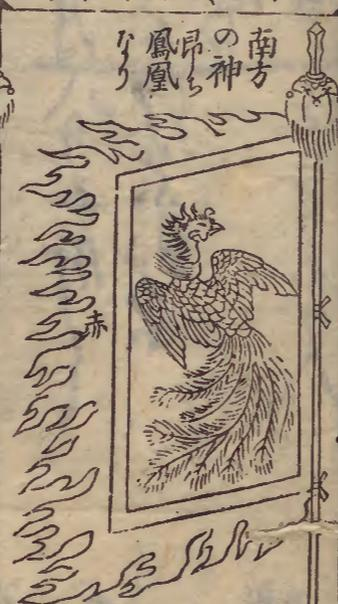 南方
の神
即ち
鳳凰
なり
赤